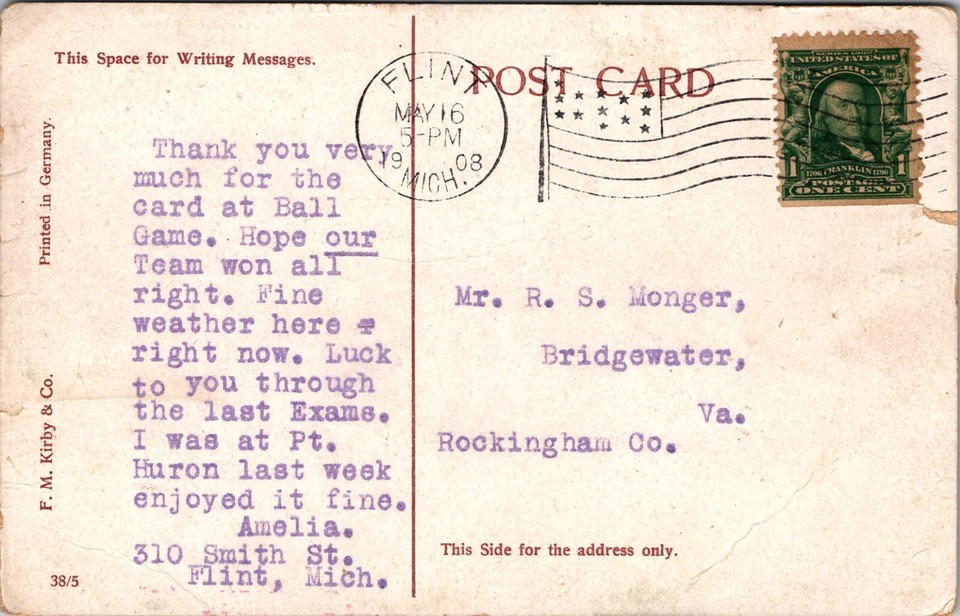 This Space for Writing Messages.
POST CARD
FLINT
MAY 16
5-PM
1908
MICH.
SERIES 1902
UNITED STATES OF
AMERICA
1 1706 FRANKLIN 1790 1
POSTAGE
ONE CENT
Printed in Germany.
F. M. Kirby & Co.
38/5
Thank you very
much for the
card at Ball
Game. Hope our
Team won all
right. Fine
weather here
right now. Luck
to you through
the last Exams.
I was at Pt.
Huron last week
enjoyed it fine.
Amelia.
310 Smith St.
Flint, Mich.
Mr. R. S. Monger,
Bridgewater,
Va.
Rockingham Co.
This Side for the address only.